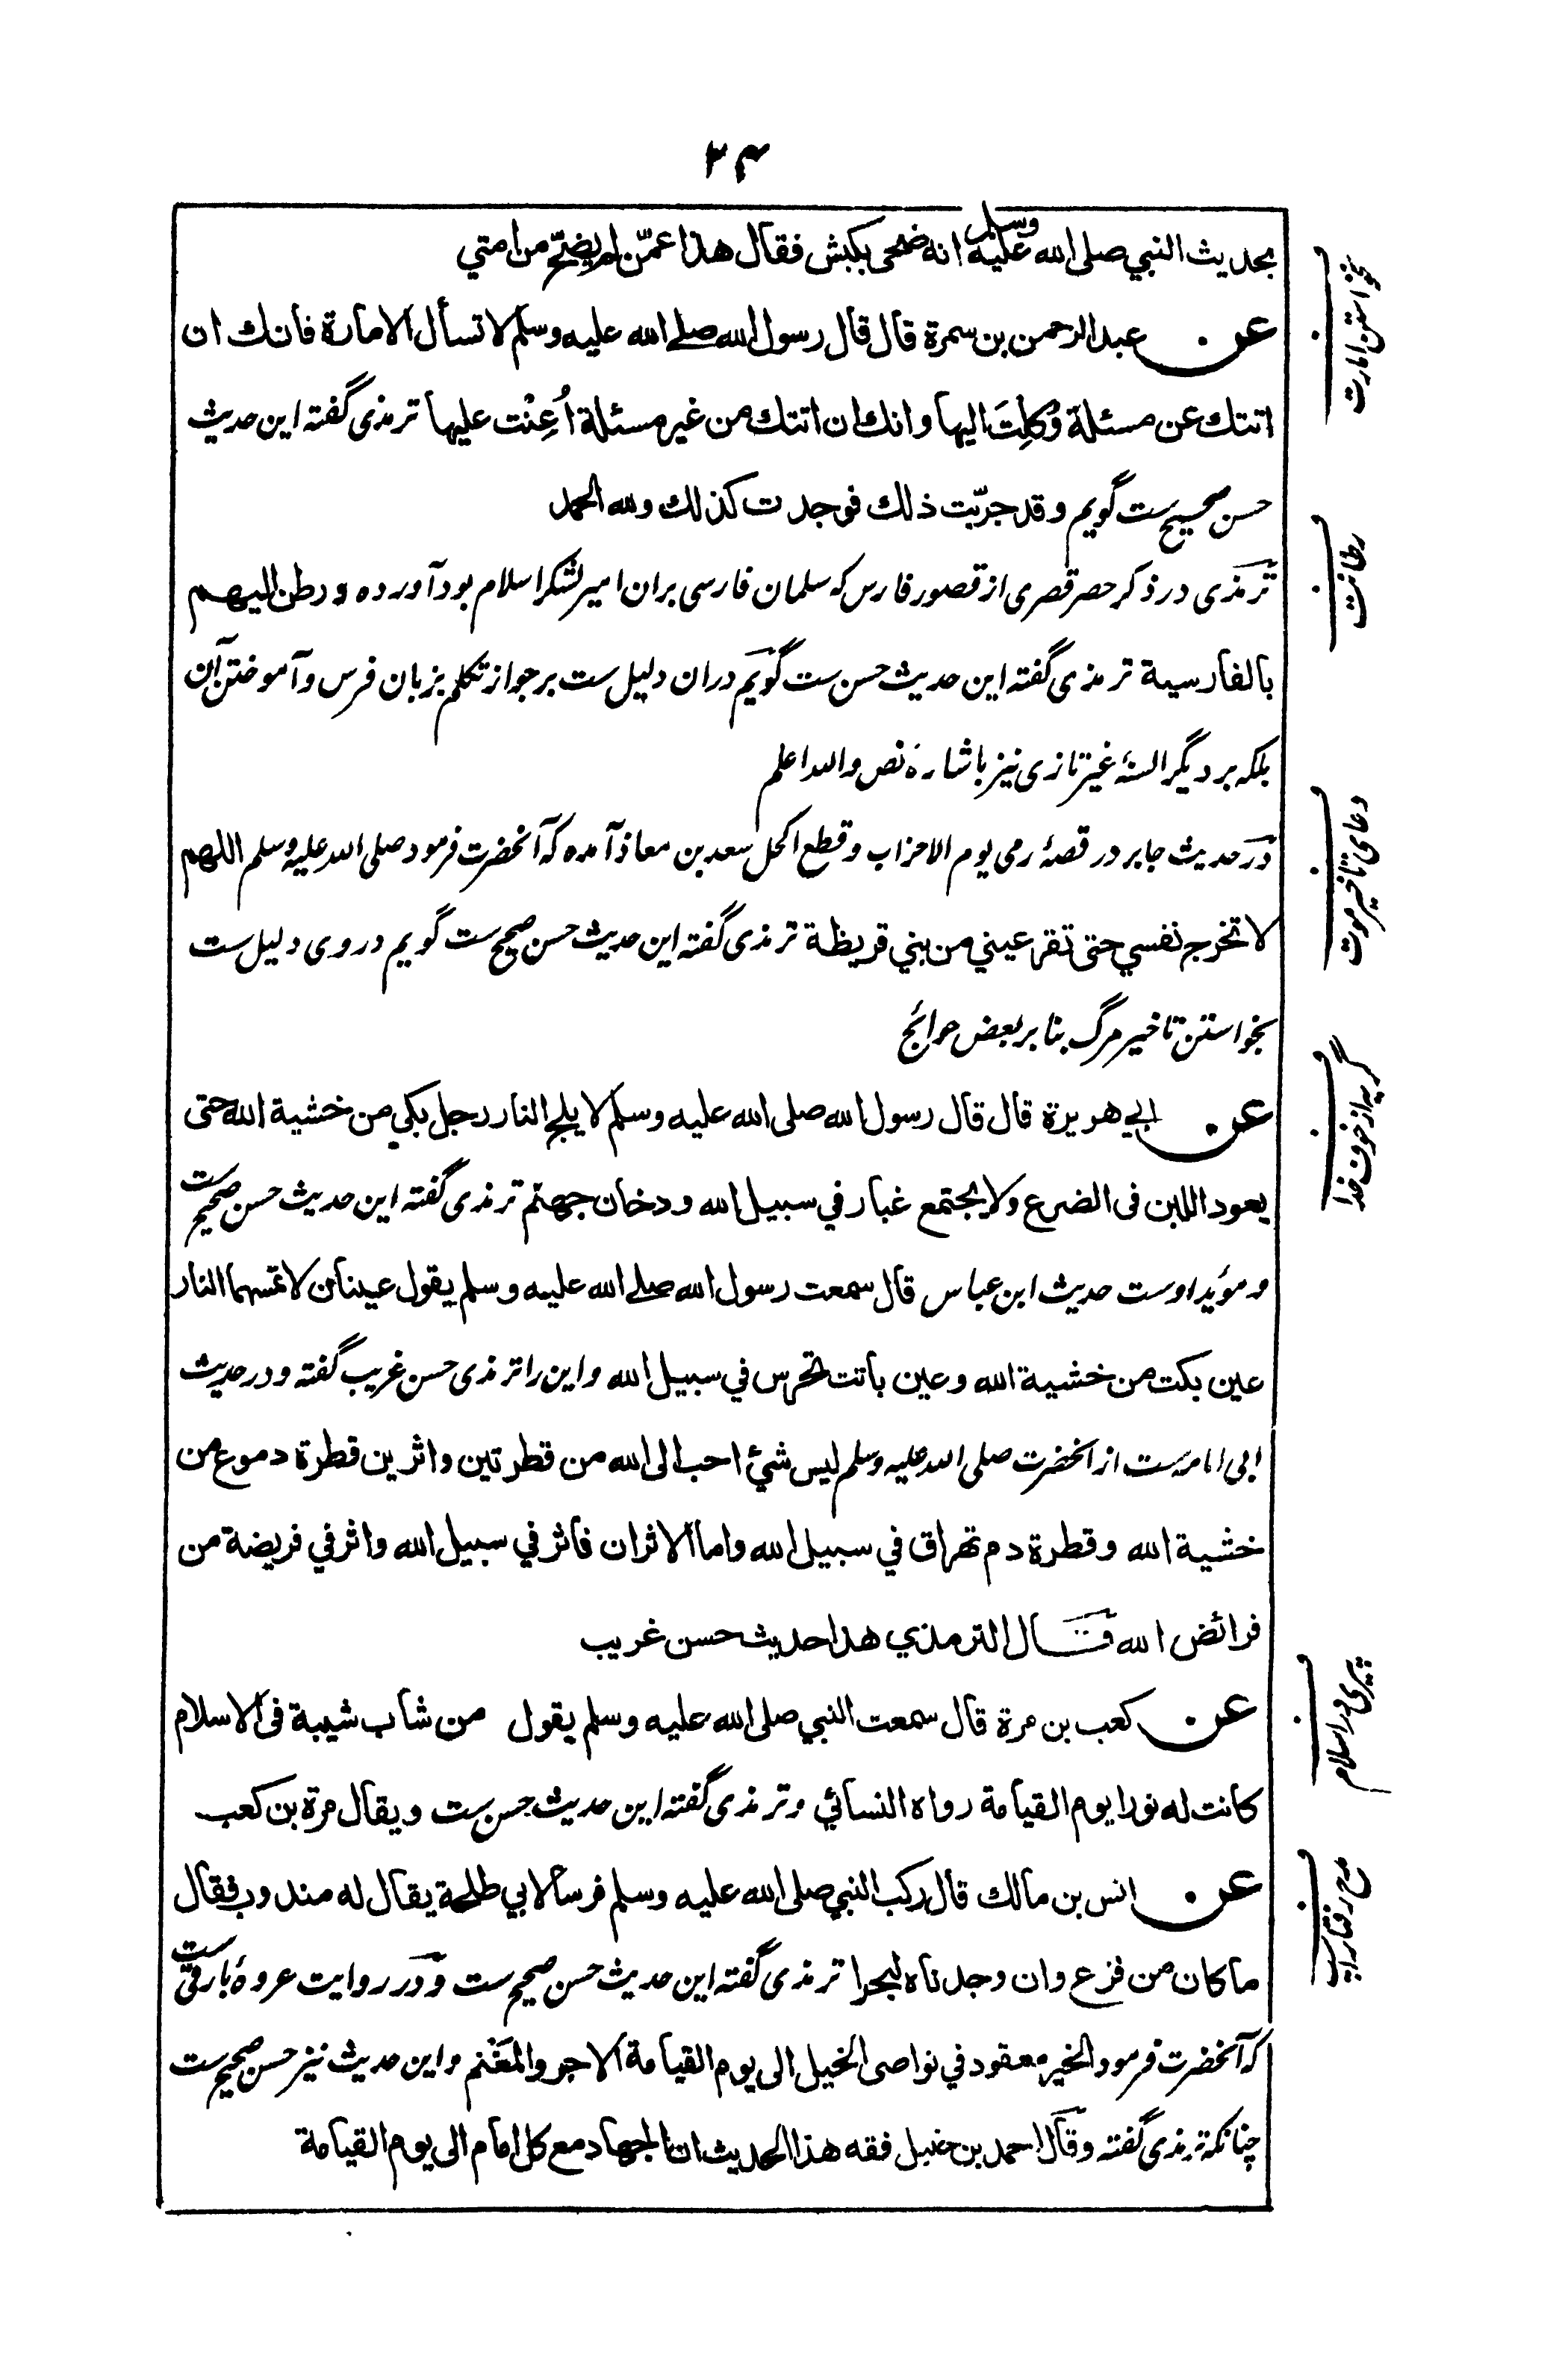 ۲۴
بحديث النبي صلى الله عليه وسلم انه ضحى بكبش فقال هذا عمّن لم يضحّ من امتي
عن عبد الرحمن بن سمرة قال قال رسول الله صلے الله عليه وسلم لا تسأل الامارة فانك ان
اتتك عن مسئلة وُكِلِتَ اليها وانك ان اتتك من غير مسئلة اُعِنْت عليها ترمذی گفته این حدیث
حسن صحیح ست گویم وقد جرّبت ذلك فوجدت كذلك ولله الحمد
ترمذی در ذکر حصر قصری از قصور فارس که سلمان فارسی بران امیر لشکر اسلام بود آورده ورطن اليهم
بالفارسية ترمذی گفته این حدیث حسن ست گویم دران دلیل ست بر جواز تکلم بزبان فرس و آموختن آن
بلکه بر دیگر السنۀ غیر تازی نیز باشارۀ نص والله اعلم
در حدیث جابر در قصۀ رمی یوم الاحزاب و قطع اکحل سعد بن معاذ آمده که آنحضرت فرمود صلی الله علیه وسلم اللهم
لا تخرج نفسي حتى تقر عيني من بني قريظة ترمذی گفته این حدیث حسن صحیح ست گویم در وی دلیل ست
بخواستن تاخیر مرگ بنا بر بعض حوائج
عن ابي هريرة قال قال رسول الله صلى الله عليه وسلم لا يلج النار رجل بكي من خشية الله حتى
يعود اللبن فى الضرع ولا يجتمع غبار في سبيل الله ودخان جهنم ترمذی گفته این حدیث حسن صحیح ست
و مؤید اوست حدیث ابن عباس قال سمعت رسول الله صلے الله عليه وسلم يقول عينان لا تمسهما النار
عين بكت من خشية الله وعين باتت تحرس في سبيل الله واین را ترمذی حسن غریب گفته و در حدیث
ابی امامه ست از آنحضرت صلی الله علیه وسلم ليس شيئ احب الى الله من قطرتين واثرين قطرة دموع من
خشية الله وقطرة دم تهراق في سبيل الله واما الاثران فأثر في سبيل الله واثر في فريضة من
فرائض الله قال الترمذي هذا حديث حسن غريب
عن كعب بن مرة قال سمعت النبي صلى الله عليه وسلم يقول من شاب شيبة فى الاسلام
كانت له نورا يوم القيامة رواه النسائي وترمذی گفته این حدیث حسن ست ويقال مرة بن كعب
عن انس بن مالك قال ركب النبي صلى الله عليه وسلم فرسا لابي طلحة يقال له مندوب فقال
ما كان من فزع وان وجدناه لبحرا ترمذی گفته این حدیث حسن صحیح ست ودر روایت عروۀ بارقی ست
که آنحضرت فرمود الخير معقود في نواصى الخيل الى يوم القيامة الاجر والمغنم واین حدیث نیز حسن صحیح ست
چنانکه ترمذی گفته وقال احمد بن حنبل فقه هذا الحديث ان الجهاد مع كل امام الى يوم القيامة
نخواستن امارت
رطانت
دعای تاخیر موت
گریه از خوف خدا
پیری در اسلام
مدح رفتار اسپ